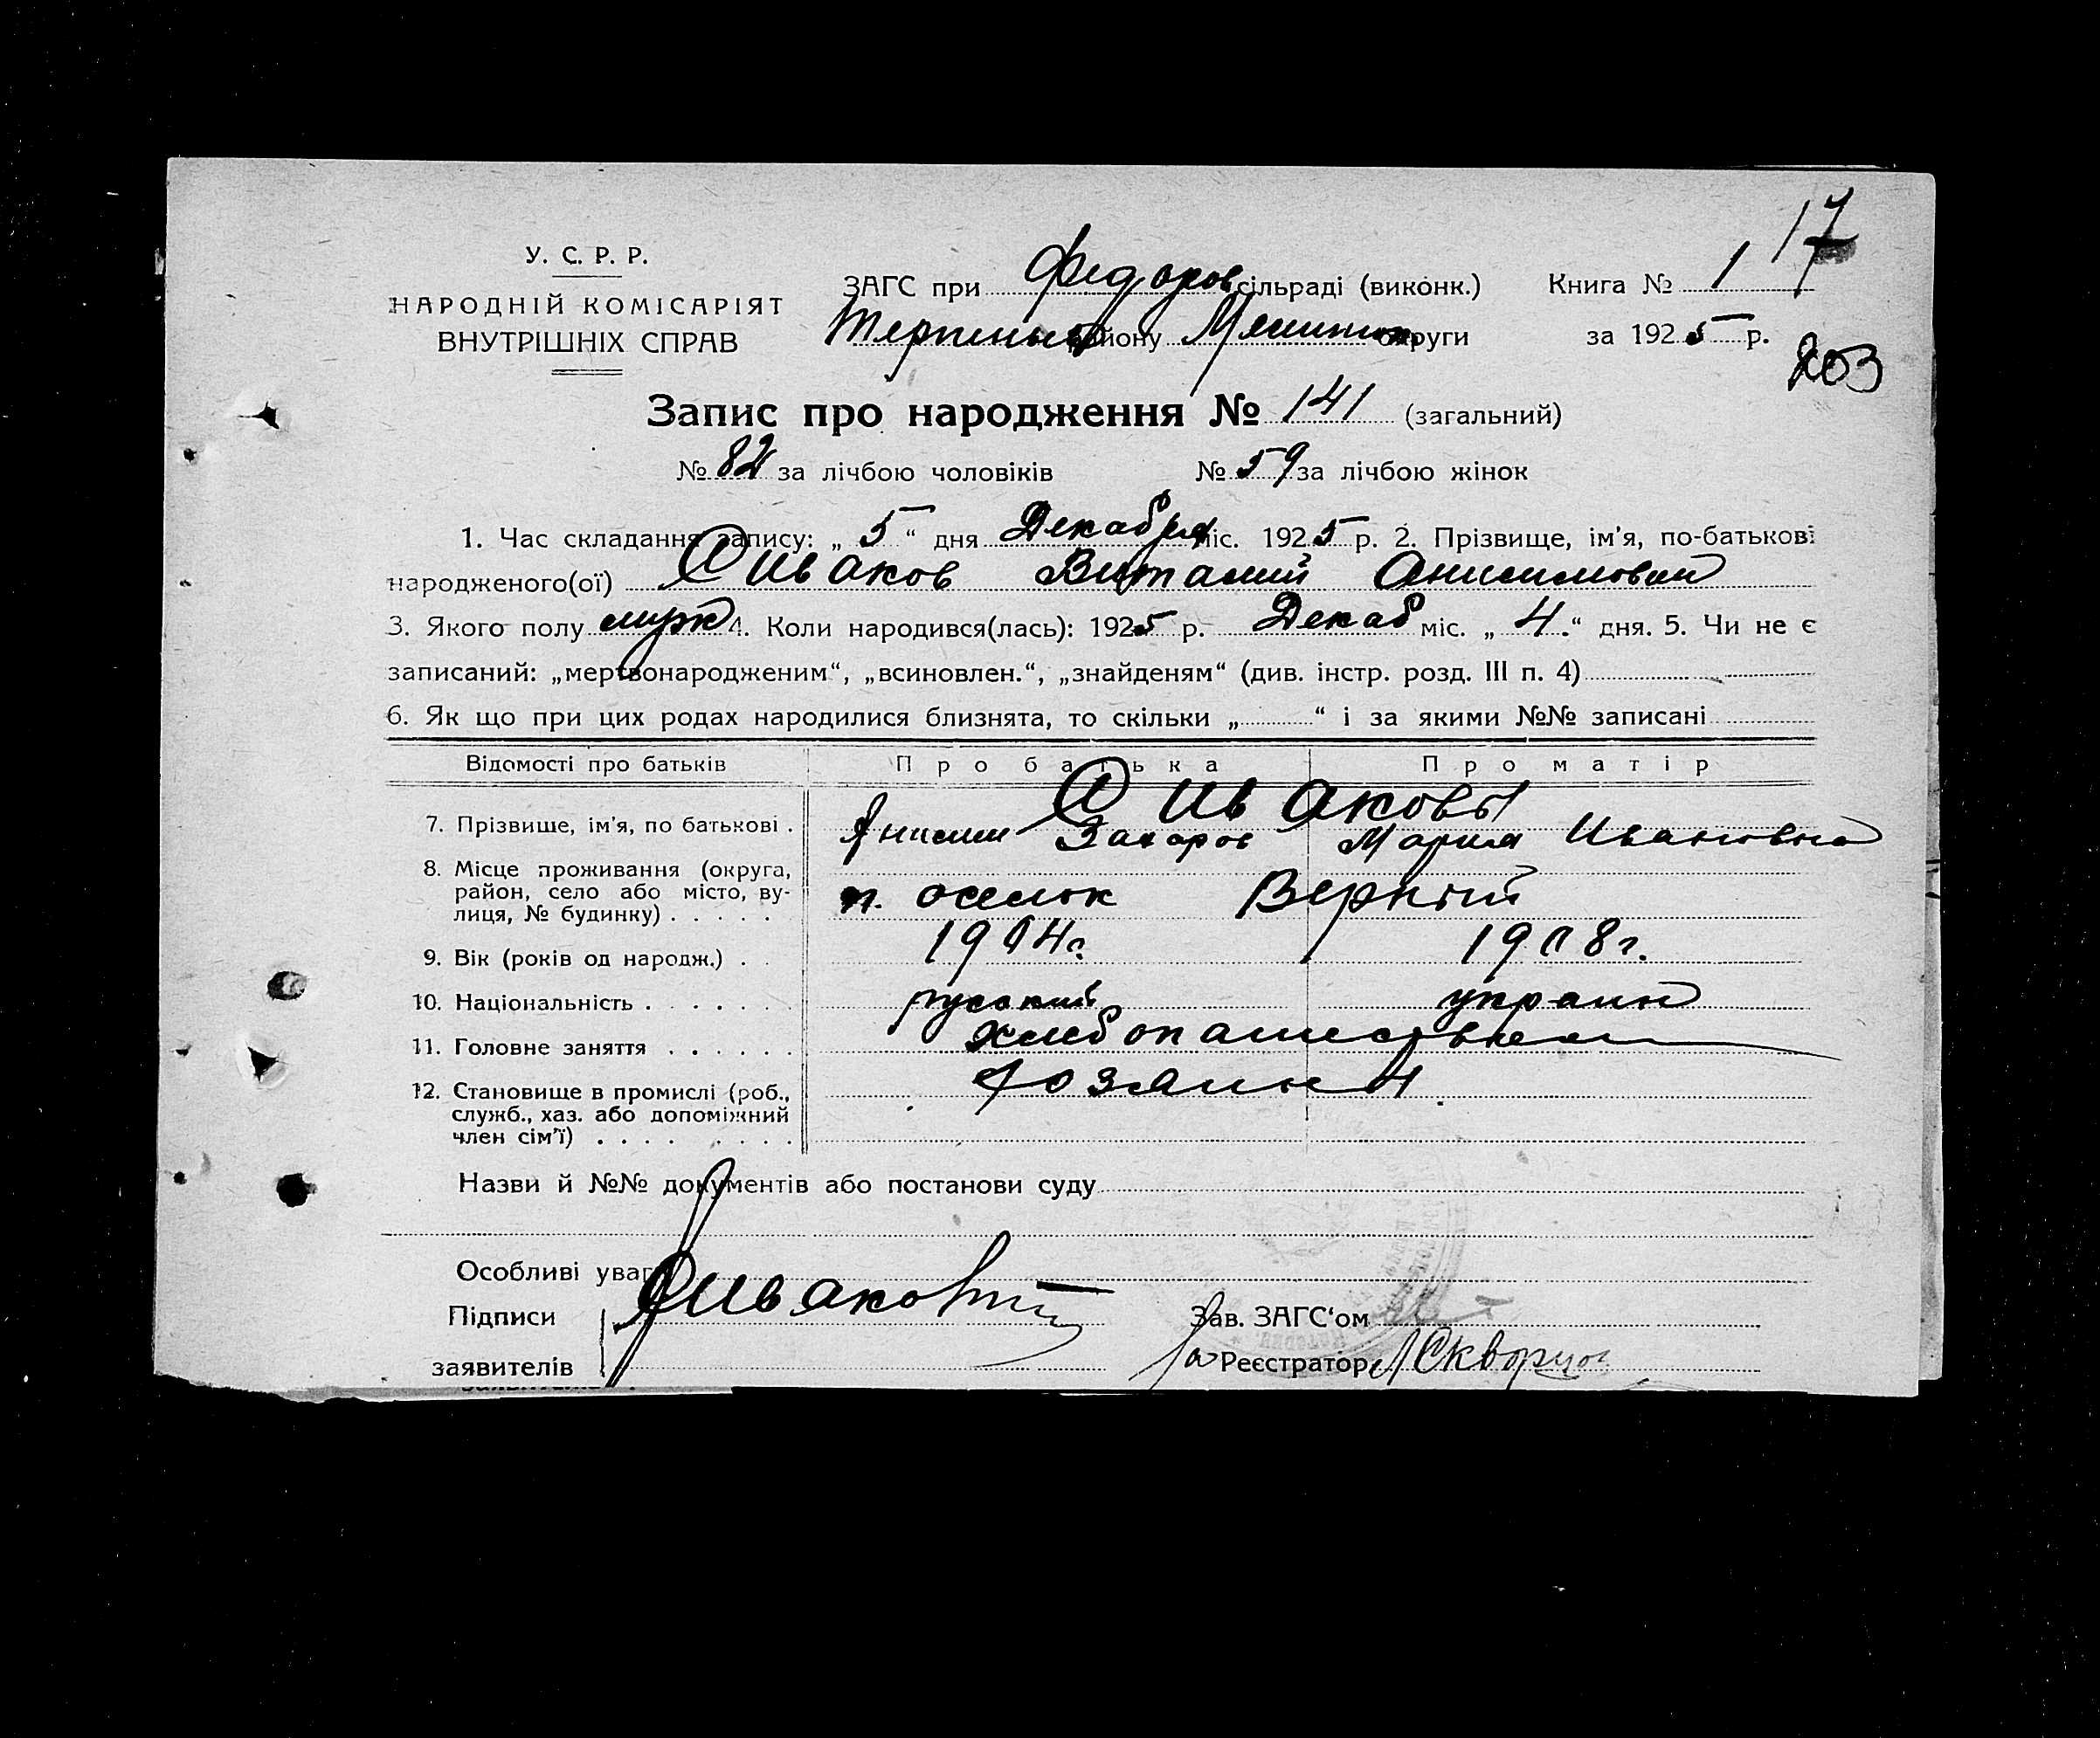 17
У. С. Р. Р.
НАРОДНІЙ КОМІСАРІЯТ
ВНУТРІШНІХ СПРАВ
ЗАГС при Федоров сільраді (виконк.) Книга № 1
району округи за 1925 р.
203
Запис про народження № 141 (загальний)
№ 82 за лічбою чоловіків № 59 за лічбою жінок
1. Час складання запису: „ 5 “ дня Декабря міс. 1925 р. 2. Прізвище, ім'я, по-батькові
народженого(ої) Сиваков Виталий Анисимович
3. Якого полу муж 4. Коли народився(лась): 1925 р. Декаб міс. „ 4. “ дня. 5. Чи не є
записаний: „мертвонародженим“, „всиновлен.“, „знайденям“ (див. інстр. розд. III п. 4)
6. Як що при цих родах народилися близнята, то скільки „ “ і за якими №№ записані
Відомості про батьків Про батька Про матір
Сиваковы
7. Прізвище, ім'я, по батькові . Анисим Захаров Мария Ивановна
8. Місце проживання (округа,
район, село або місто, ву-
лиця, № будинку) . . . . . п. оселок Верний
9. Вік (років од народж.) . . 1904г. 1908г.
10. Національність . . . . . . русский украин
11. Головне заняття . . . . . .
12. Становище в промислі (роб.,
служб., хаз. або допоміжний
член сім'ї) . . . . . . . .
Назви й №№ документів або постанови суду
Особливі уваг
Підписи
заявителів
Зав. ЗАГС'ом
Реєстратор Скворцов